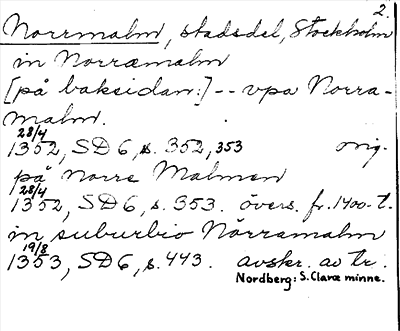 2.
Norrmalm, stadsdel, Stockholm
in Norræmalm
[på baksidan:] -- vpa Norra-
malm.
28/4
1352, SD 6, s. 352, 353 orig.
på Norre Malmen
28/4
1352, SD 6, s. 353. övers. fr. 1400-t.
in suburbio Nörramalm
19/8
1353, SD 6, s. 443. avskr. av tr.
Nordberg: S. Claræ minne.